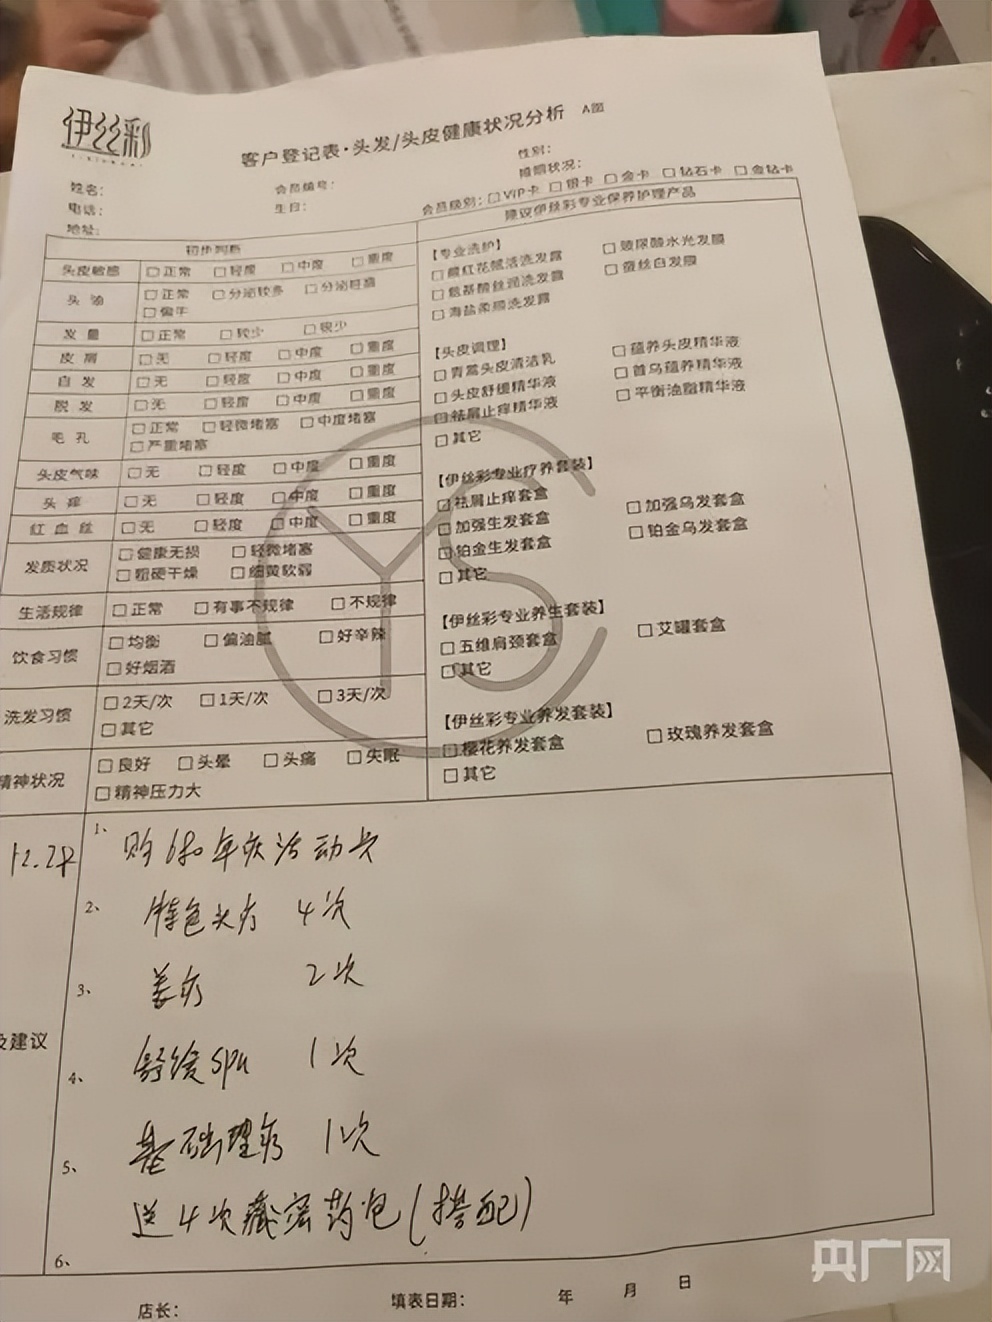 伊丝彩
客户登记表·头发/头皮健康状况分析 A面
姓名： 会员编号： 性别：
电话： 生日： 婚姻状况：
地址： 会员级别：□VIP卡 □银卡 □金卡 □钻石卡 □金钻卡
初步判断
头皮敏感 □正常 □轻度 □中度 □重度
头油 □正常 □分泌较多 □分泌旺盛
□偏干
发量 □正常 □较少 □很少
皮屑 □无 □轻度 □中度 □重度
白发 □无 □轻度 □中度 □重度
脱发 □无 □轻度 □中度 □重度
毛孔 □正常 □轻微堵塞 □中度堵塞
□严重堵塞
头皮气味 □无 □轻度 □中度 □重度
头痒 □无 □轻度 □中度 □重度
红血丝 □无 □轻度 □中度 □重度
发质状况 □健康无损 □轻微堵塞
□粗硬干燥 □细黄软弱
生活规律 □正常 □有事不规律 □不规律
饮食习惯 □均衡 □偏油腻 □好辛辣
□好烟酒
洗发习惯 □2天/次 □1天/次 □3天/次
□其它
精神状况 □良好 □头晕 □头痛 □失眠
□精神压力大
建议伊丝彩专业保养护理产品
【专业洗护】
□藏红花赋活洗发露 □玻尿酸水光发膜
□氨基酸丝润洗发露 □蚕丝白发膜
□海盐柔顺洗发露
【头皮调理】
□青蒿头皮清洁乳 □蕴养头皮精华液
□头皮舒缓精华液 □首乌蕴养精华液
□祛屑止痒精华液 □平衡油脂精华液
□其它
【伊丝彩专业疗养套装】
□祛屑止痒套盒 □加强乌发套盒
□加强生发套盒 □铂金乌发套盒
□铂金生发套盒
□其它
【伊丝彩专业养生套装】
□五维肩颈套盒 □艾罐套盒
□其它
【伊丝彩专业养发套装】
□樱花养发套盒 □玫瑰养发套盒
□其它
YS
12.28
1、购680年庆活动卡
2、特色头疗 4次
3、姜疗 2次
4、舒缓spa 1次
5、基础理疗 1次
送4次藏密药包(搭配)
6、
及建议
店长： 填表日期： 年 月 日
央广网